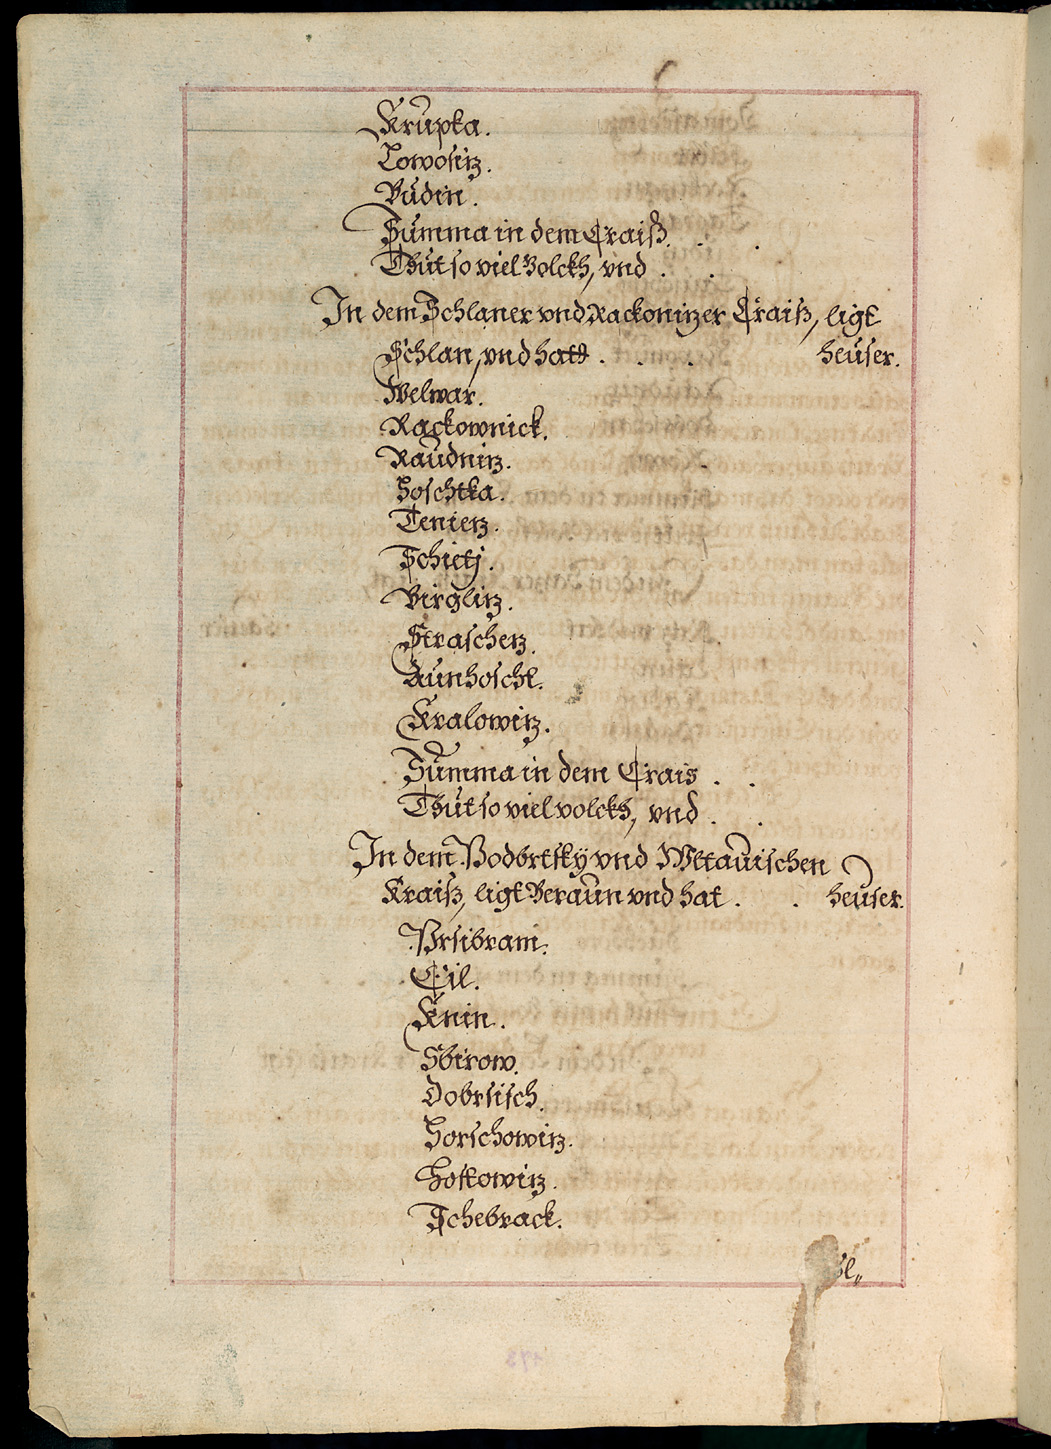 Krupka.
Lowositz.
Budin.
Summa in dem Craiß. . .
Thut so viel Volckh, vnd . .
In dem Schlaner vnd Rackonitzer Craiß, ligt
Schlan, vnd hatt . . . heuser.
Welwar.
Rackownick.
Raudnitz.
Hoschtka.
Tenietz.
Schietj.
Birglitz.
Straschetz.
Aunhoscht.
Kralowitz.
Summa in dem Crais . .
Thut so viel volckh, vnd . .
In dem Podbrtsky vnd Wltauischen
Kraiß, ligt Beraun vnd hat . . heuser.
Prsibram.
Eil.
Knin.
Sbirow.
Dobrsisch.
Horschowitz.
Hostowitz.
Schebrack.